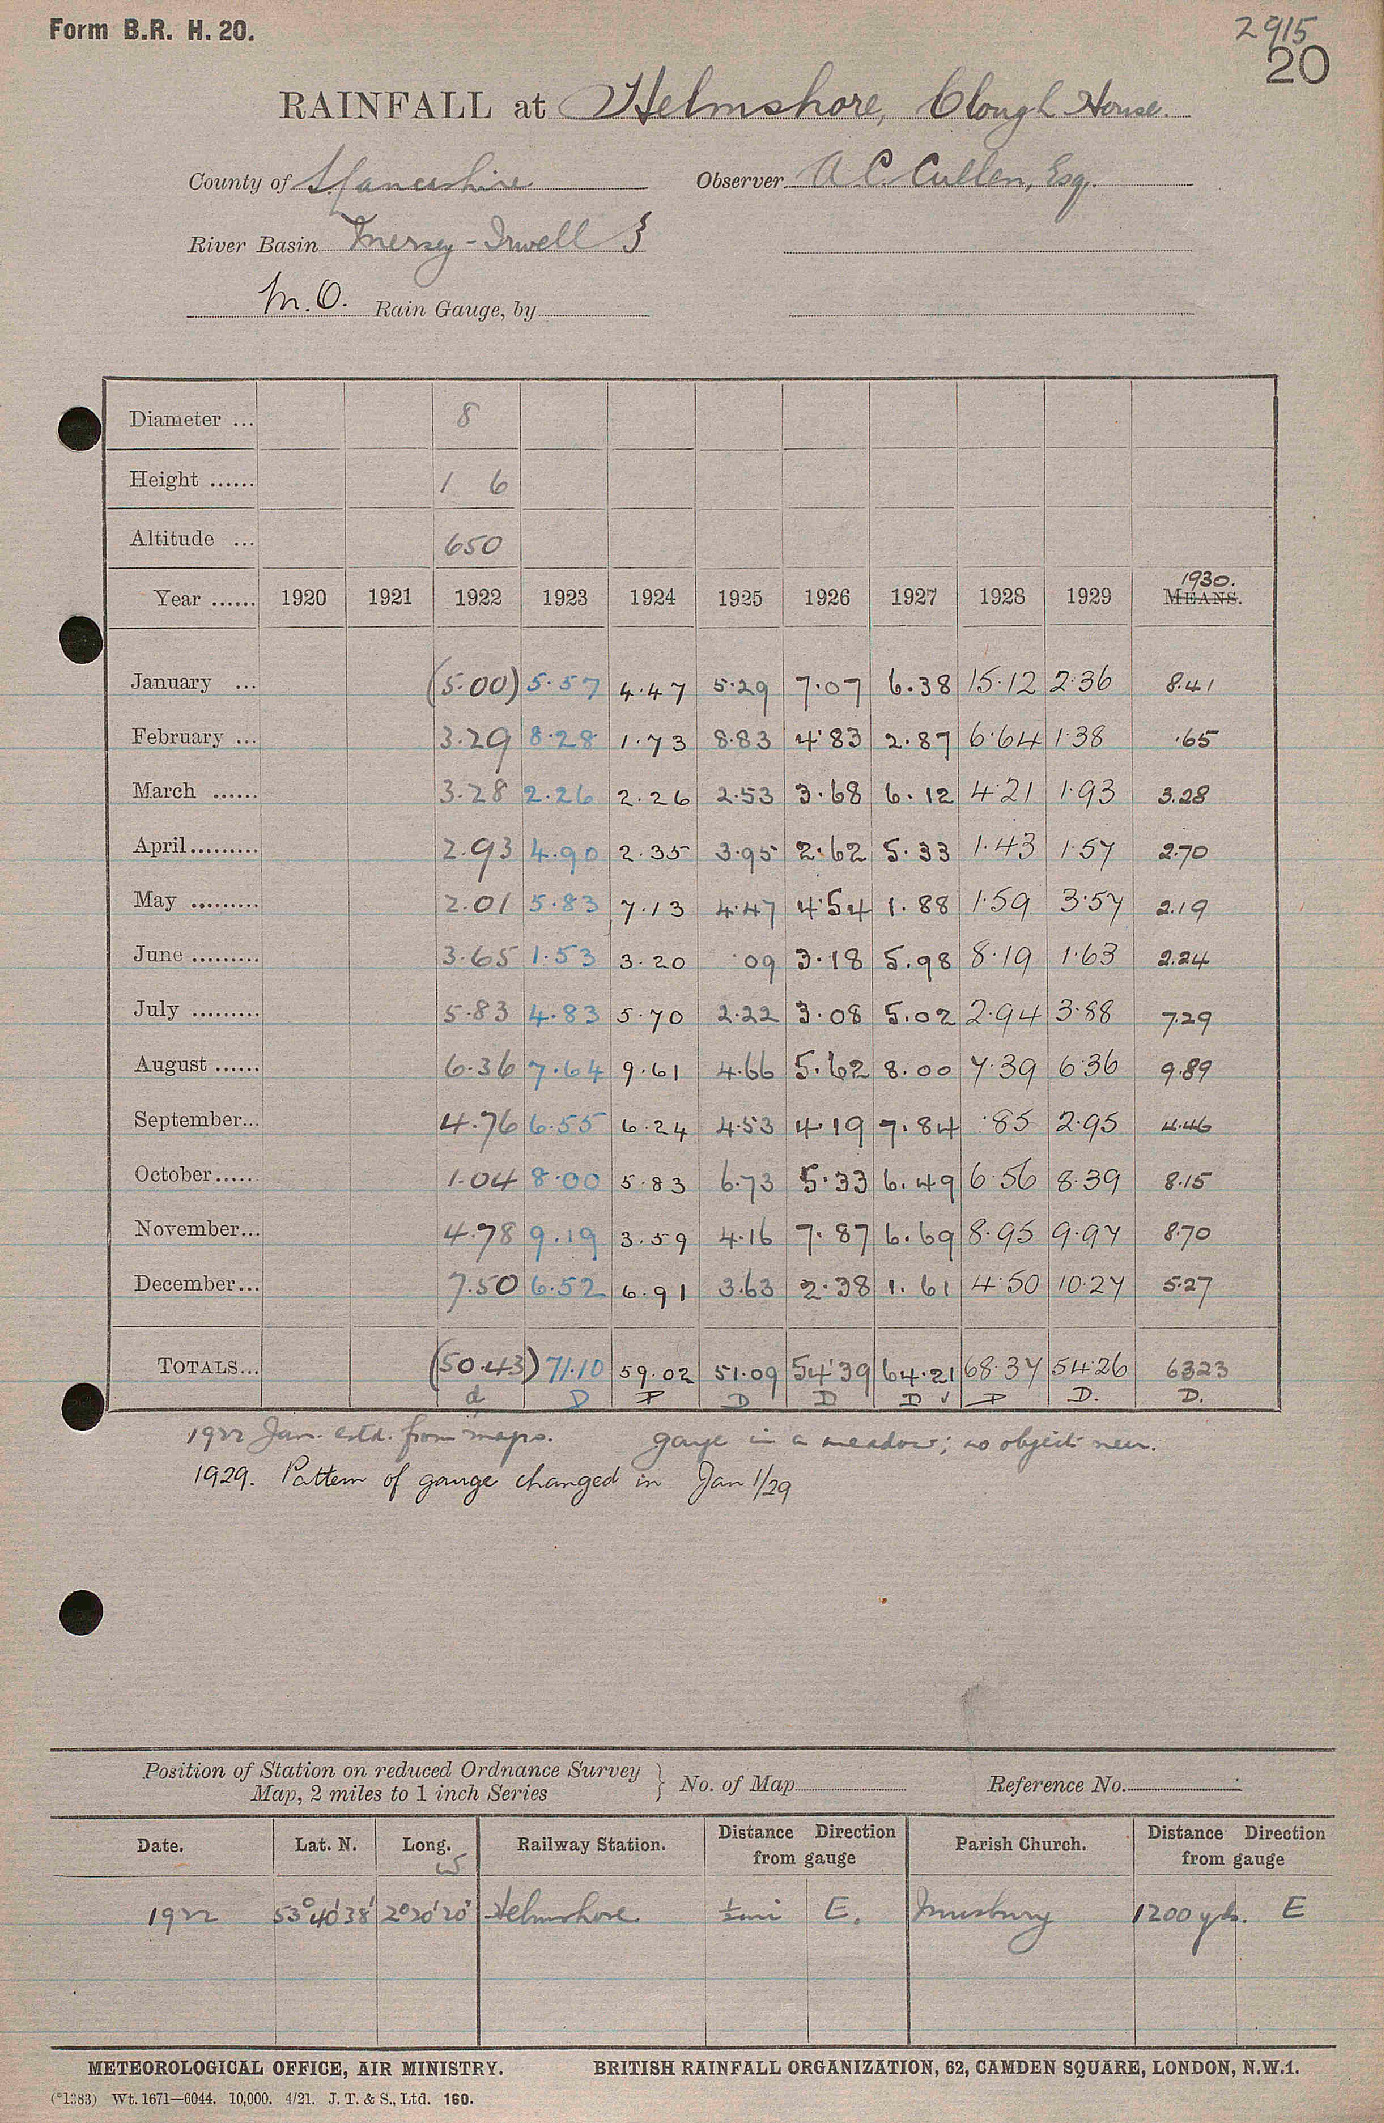 Form B.R. H. 20.
2915
20
RAINFALL at Helmshore, Clough House.
County of Lancashire Observer A. C. Cullen, Esq.
River Basin Mersey - Irwell }
M.O. Rain Gauge, by
Diameter ... 8
Height ...... 1 6
Altitude ... 650
1930.
Year ...... 1920 1921 1922 1923 1924 1925 1926 1927 1928 1929 MEANS.
January ... (5.00) 5.57 4.47 5.29 7.07 6.38 15.12 2.36 8.41
February ... 3.29 8.28 1.73 8.83 4.83 2.87 6.64 1.38 .65
March ...... 3.28 2.26 2.26 2.53 3.68 6.12 4.21 1.93 3.28
April......... 2.93 4.90 2.35 3.95 2.62 5.33 1.43 1.57 2.70
May ......... 2.01 5.83 7.13 4.47 4.54 1.88 1.59 3.57 2.19
June ......... 3.65 1.53 3.20 .09 3.18 5.98 8.19 1.63 2.24
July ......... 5.83 4.83 5.70 2.22 3.08 5.02 2.94 3.88 7.29
August ...... 6.36 7.64 9.61 4.66 5.62 8.00 7.39 6.36 9.89
September... 4.76 6.55 6.24 4.53 4.19 7.84 .85 2.95 4.46
October...... 1.04 8.00 5.83 6.73 5.33 6.49 6.56 8.39 8.15
November... 4.78 9.19 3.59 4.16 7.87 6.69 8.95 9.97 8.70
December... 7.50 6.52 6.91 3.63 2.38 1.61 4.50 10.27 5.27
TOTALS... (50.43) 71.10 59.02 51.09 54.39 64.21 68.37 54.26 63.23
d D D D D D ✓ D D. D.
1922 Jan. estd. from maps. gauge in a meadow; no object near.
1929. Pattern of gauge changed in Jan 1/29
Position of Station on reduced Ordnance Survey
Map, 2 miles to 1 inch Series } No. of Map Reference No.
Date. Lat. N. Long. W Railway Station. Distance Direction from gauge Parish Church. Distance Direction from gauge
1922 53° 40' 38" 2° 20' 20" Helmshore ½ mi E. Musbury 1200 yds. E
METEOROLOGICAL OFFICE, AIR MINISTRY. BRITISH RAINFALL ORGANIZATION, 62, CAMDEN SQUARE, LONDON, N.W.1.
(*1383) Wt. 1671—6044. 10,000. 4/21. J. T. & S., Ltd. 160.